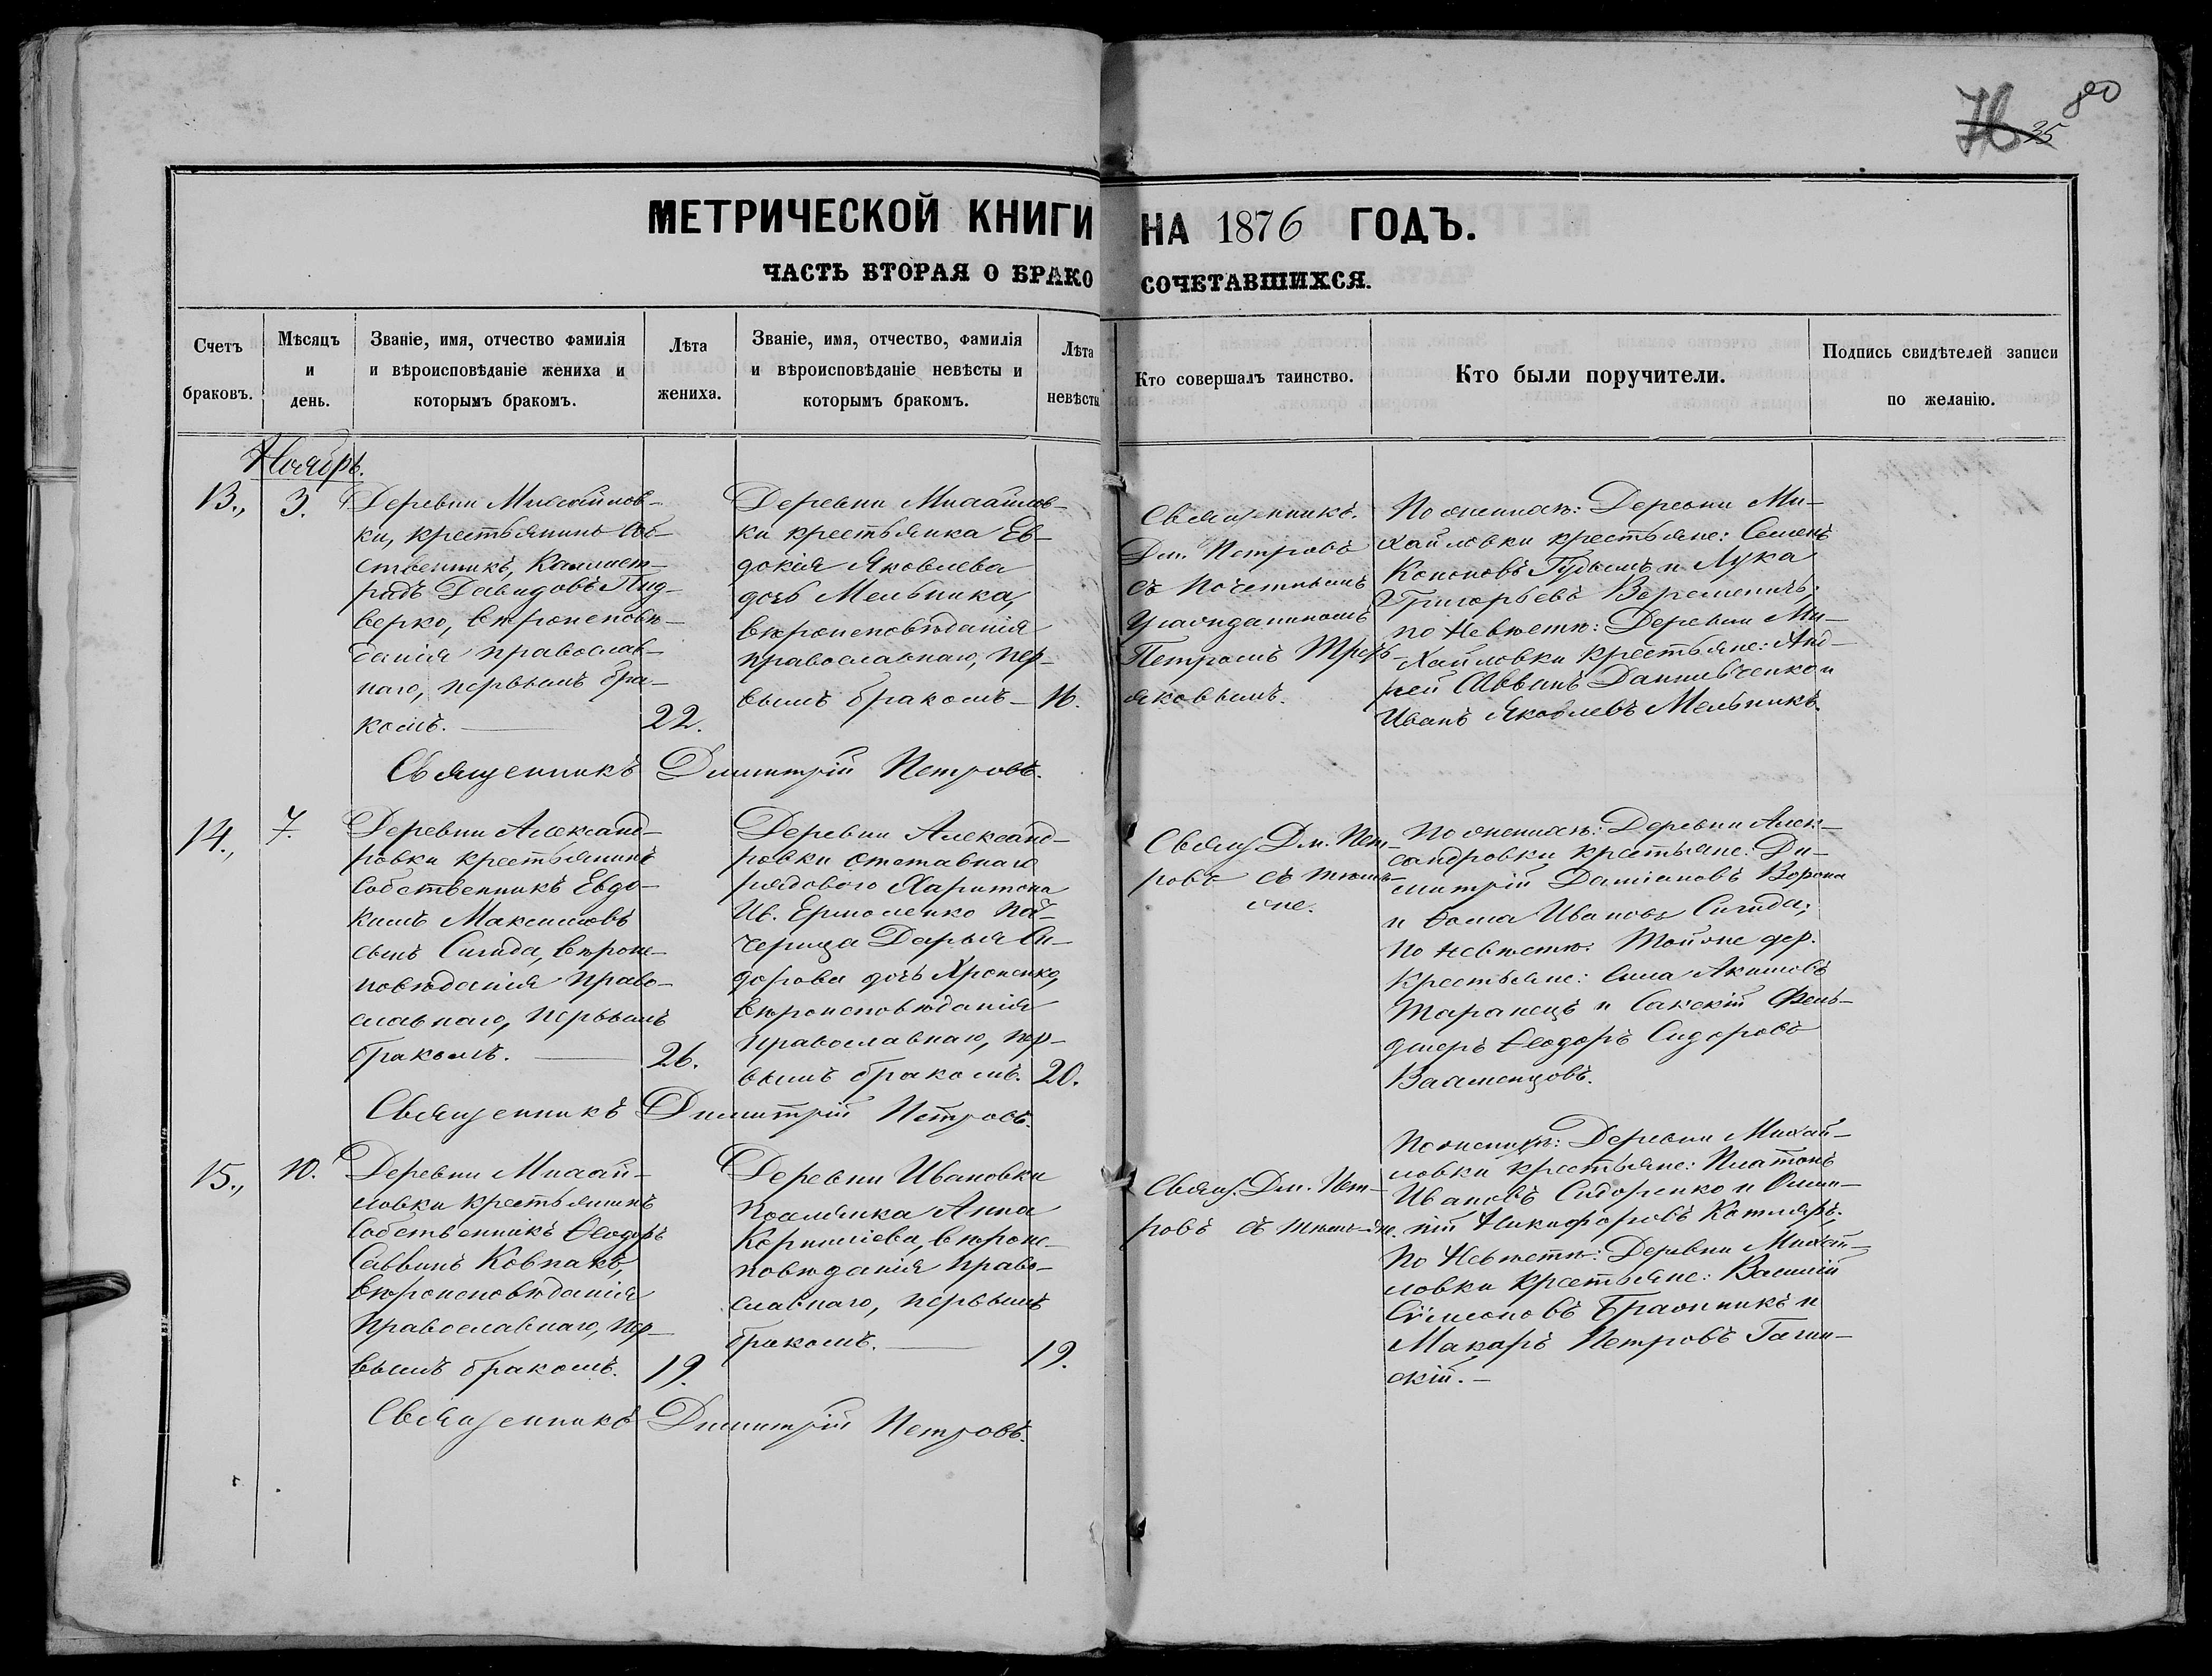 80
35
МЕТРИЧЕСКОЙ КНИГИ НА 1876 ГОДЪ.
ЧАСТЬ ВТОРАЯ О БРАКО СОЧЕТАВШИХСЯ.
Счетъ браковъ.
Мѣсяцъ и день.
Званіе, имя, отчество фамилія и вѣроисповѣданіе жениха и которымъ бракомъ.
Лѣта жениха.
Званіе, имя, отчество, фамилія и вѣроисповѣданіе невѣсты и которымъ бракомъ.
Лѣта невѣсты
Кто совершалъ таинство.
Кто были поручители.
Подпись свидѣтелей записи по желанію.
Ноябрь.
13., 3.
Деревни Михайлов-
ки, крестьянинъ Соб-
ственникъ,
Давидовъ Пид-
верко, вѣроисповѣ-
данія православ-
наго, первымъ бра-
комъ. 22.
Деревни Михайлов-
ки крестьянка Ев-
докія Яковлева
дочь Мельника,
вѣроисповѣданія
православнаго, пер-
вымъ бракомъ 16.
Священникъ.
Дм. Петровъ
съ Почетнымъ
Гражданиномъ
Петромъ Треть-
яковымъ.
По женихѣ: Деревни Ми-
хайловки крестьяне: Семенъ
Кононовъ Гудымъ и Лука
Григорьевъ
по Невѣстѣ: Деревни Ми-
хайловки крестьяне: Анд-
рей Саввинъ Данильченко и
Иванъ Яковлевъ Мельникъ.
Священникъ Димитрій Петровъ.
14., 7.
Деревни Александ-
ровки крестьянинъ
Собственникъ Евдо-
кимъ Максимовъ
сынъ Сигида, вѣроис-
повѣданія право-
славнаго, первымъ
бракомъ. 26.
Деревни Александ-
ровки отставнаго
рядового Харитона
Ив. Ермоленко пад-
черица Дарья Си-
дорова дочь Хроненко,
вѣроисповѣданія
православнаго, пер-
вымъ бракомъ. 20.
Свящ. Дм. Пет-
ровъ съ тѣмъ-
же.
По женихѣ: Деревни Алек-
сандровки крестьяне: Ди-
митрій Даміановъ Ворона
и Ѳома Ивановъ Сигида;
По Невѣстѣ: Той же дер.
крестьяне: Сила Акимовъ
Таранецъ и Сакскій Фель-
дшеръ Ѳеодоръ Сидоровъ
Священникъ Димитрій Петровъ.
15., 10.
Деревни Михай-
ловки крестьянинъ
Собственникъ Ѳеодоръ
Саввинъ Ковпакъ,
вѣроисповѣданія
Православнаго, пер-
вымъ бракомъ. 19.
Деревни Ивановки
Поселянка Анна
Корнилiева, вѣроис-
повѣданія право-
славнаго, первымъ
бракомъ. 19.
Свящ. Дм. Пет-
ровъ съ тѣмъ-же.
По женихѣ: Деревни Михай-
ловки крестьяне: Платонъ
Ивановъ Сидоренко и Осип-
пій Никифоровъ Котляръ.
По Невѣстѣ: Деревни Михай-
ловки крестьяне: Василій
Сѵмеоновъ Бражникъ и
Макаръ Петровъ Гагин-
скій.
Священникъ Димитрій Петровъ.